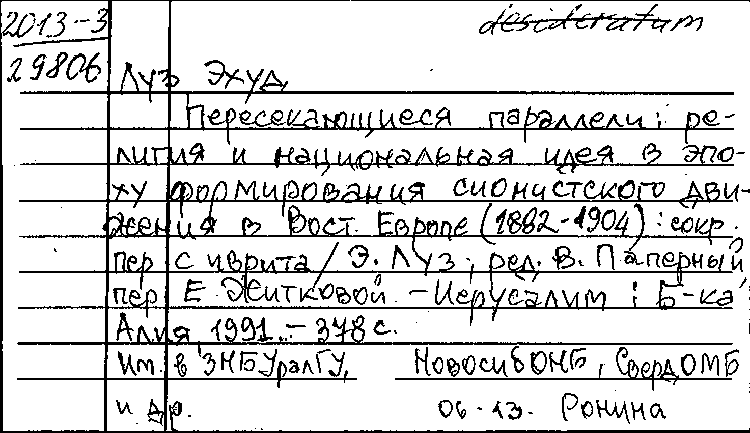 2013-3 desideratum
29806
Луз Эхуд
Пересекающиеся параллели: ре-
лигия и национальная идея в эпо-
ху формирования сионистского дви-
жения в Вост. Европе (1882-1904) : сокр.
пер. с иврита / Э. Луз ; ред. В. Паперный,
пер. Е. Житковой. - Иерусалим : Б-ка
Алия, 1991. - 378 с.
Им. в ЗНБУралГУ, НовосибОНБ, СвердОМБ
и др. 06.13. Ронина